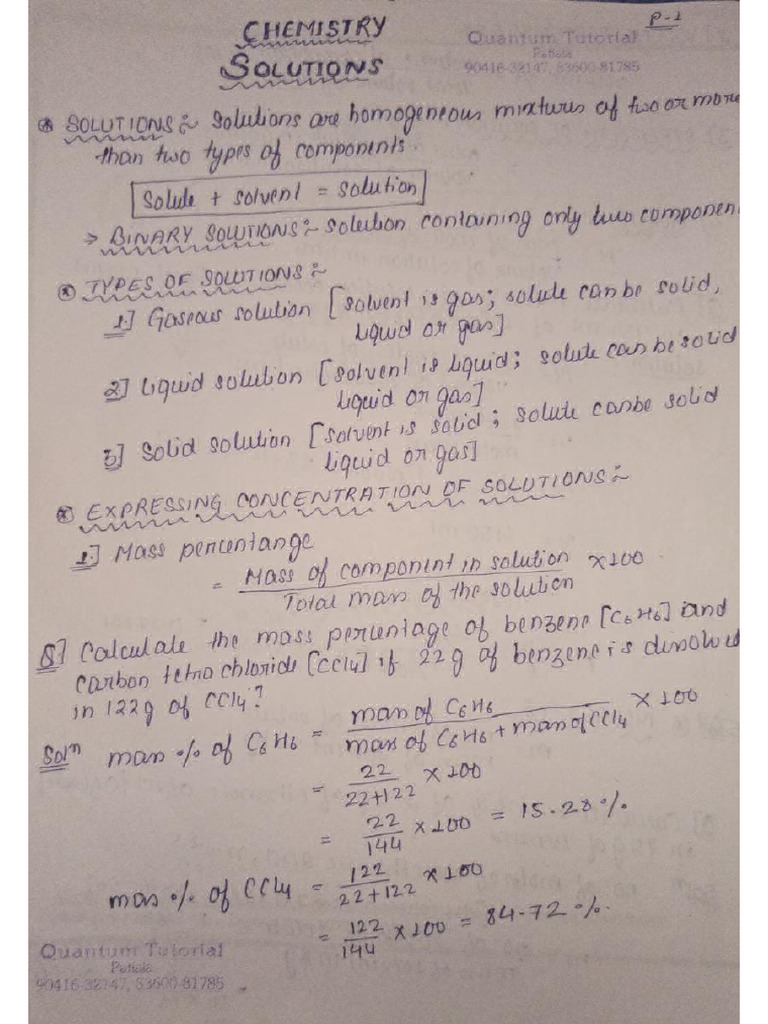 P-1
CHEMISTRY
Quantum Tutorial
Patiala
90416-32147, 83600-81785
SOLUTIONS
SOLUTIONS:~ Solutions are homogeneous mixtures of two or more
than two types of components.
Solute + solvent = solution
→ BINARY SOLUTIONS:~ solution containing only two componen
TYPES OF SOLUTIONS:~
1] Gaseous solution [solvent is gas; solute can be solid,
liquid or gas]
2] Liquid solution [solvent is liquid; solute can be solid
liquid or gas]
3] Solid solution [solvent is solid; solute can be solid
liquid or gas]
EXPRESSING CONCENTRATION OF SOLUTIONS:~
1.] Mass percentange
= Mass of component in solution / Total mass of the solution × 100
Q] Calculate the mass percentage of benzene [C6H6] and
carbon tetrachloride [CCl4] if 22g of benzene is dissolved
in 122g of CCl4?
Solⁿ mass % of C6H6 = mass of C6H6 / mass of C6H6 + mass of CCl4 × 100
= 22 / 22+122 × 100
= 22 / 144 × 100 = 15.28%
mass % of CCl4 = 122 / 22+122 × 100
= 122 / 144 × 100 = 84.72%.
Quantum Tutorial
Patiala
90416-32147, 83600-81785